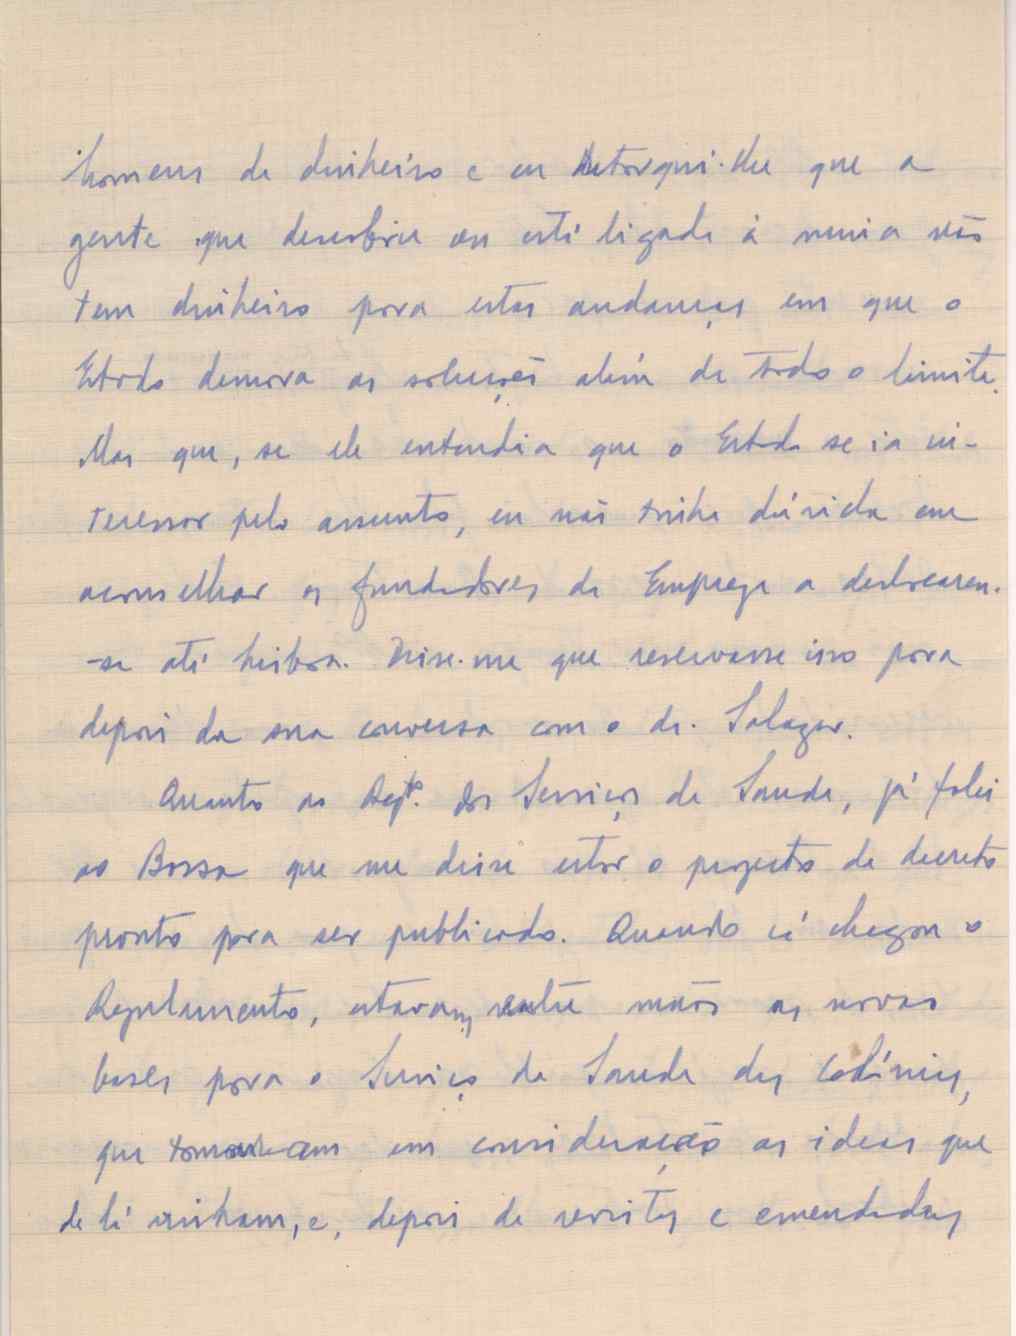 homens de dinheiro e eu retorqui-lhe que a
gente que descobriu ou está ligada à mina não
tem dinheiro para estas andanças em que o
Estado demora as soluções além de todo o limite.
Mas que, se ele entendia que o Estado se ia in-
teressar pelo assunto, eu não tinha dúvida em
aconselhar os fundadores da Empreza a deslocarem-
-se até Lisboa. Disse-me que reservasse isso para
depois da sua conversa com o dr. Salazar.
Quanto ao Regto. dos Serviços de Saude, já falei
ao Bossa que me disse estar o projecto de decreto
pronto para ser publicado. Quando cá chegou o
Regulamento, estavam, entre mãos as novas
bases para o Serviço de Saude das Colónias,
que tomaram em consideração as ideas que
de lá vinham, e, depois de revistas e emendadas